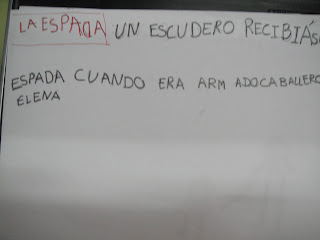 LA ESPADA UN ESCUDERO RECIBIÁ
ESPADA CUANDO ERA ARM ADOCABALLERO
ELENA